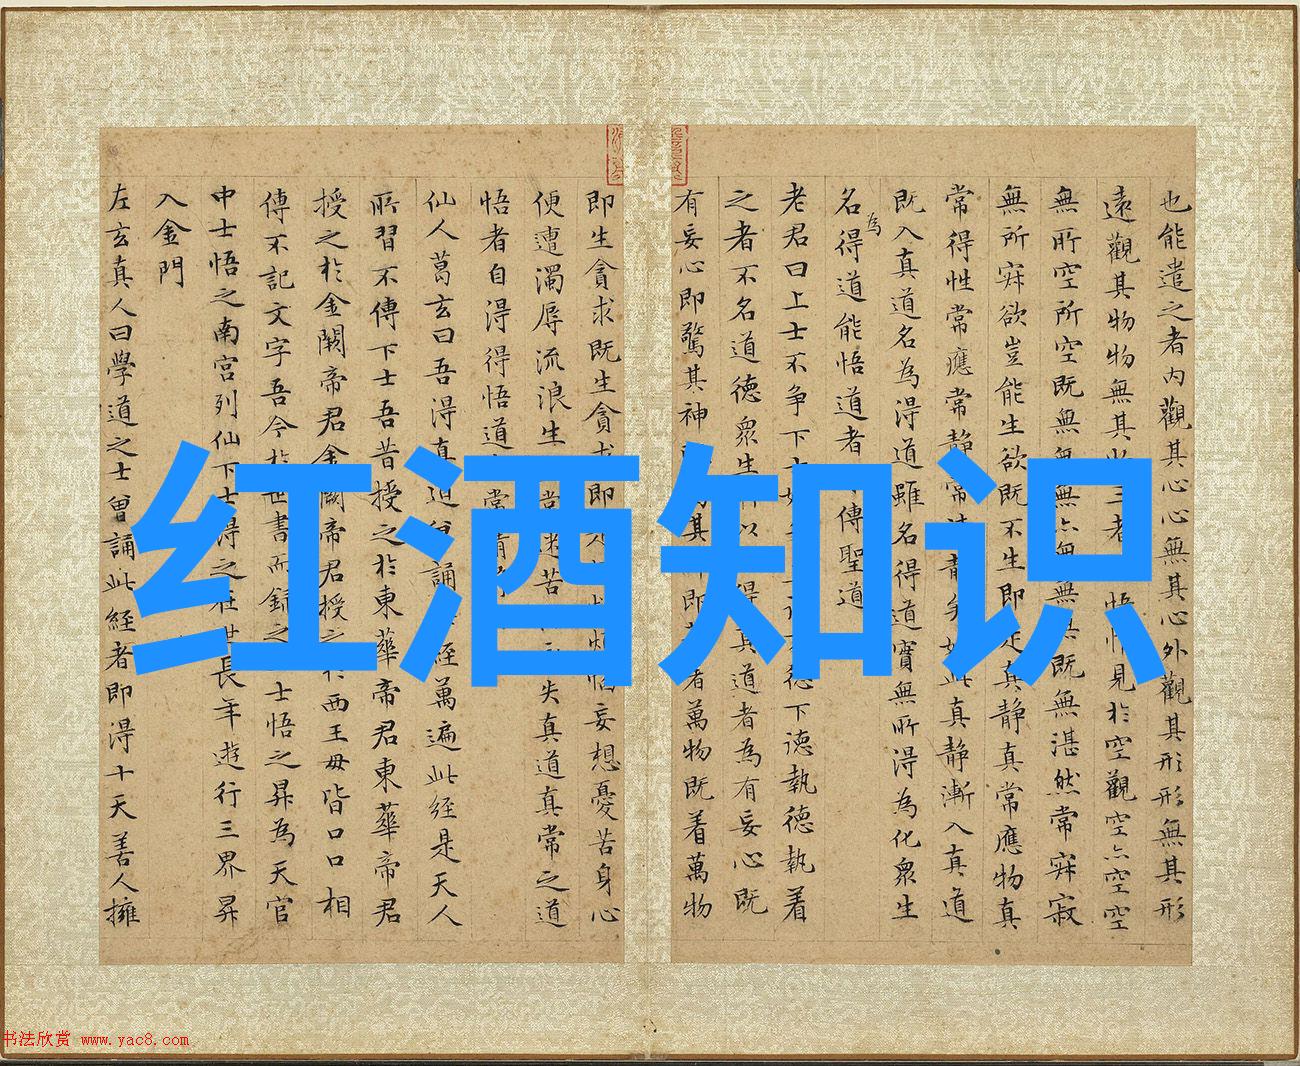 也能遣之者内觀其心心無其心外觀其形形無其形
遠觀其物物無其三者悟惟見於空觀空亦空空
無所空所空既無無無亦無無無既無湛然常寂寂
無所寂欲豈能生欲既不生即是真静真常應物真
常得性常應常静常清静矣如此真静漸入真道
既入真道名為得道雖名得道實無所得為化衆生
名為得道能悟道者傳聖道
老君曰上士不争下士不德下德執德執着
之者不名道德衆生所以得真道者為有妄心既
有妄心即驚其神其神即着萬物既着萬物
即生貪求既生貪求即煩惱妄想憂苦身心
便遭濁辱流浪生苦失真道真常之道
悟者自得得悟道常清
仙人葛玄曰吾得真道曾誦此經萬遍此經是天人
所習不傳下士吾昔授之於東華帝君東華帝君
授之於金闕帝君金闕帝君授之於西王母皆口口相
傳不記文字吾今於世書而録之上士悟之昇為天官
中士悟之南宫列仙下士得之在世長年遊行三界昇
入金門
左玄真人曰學道之士曾誦此經者即得十天善人擁
红酒知识
书法欣赏 www.yac8.com